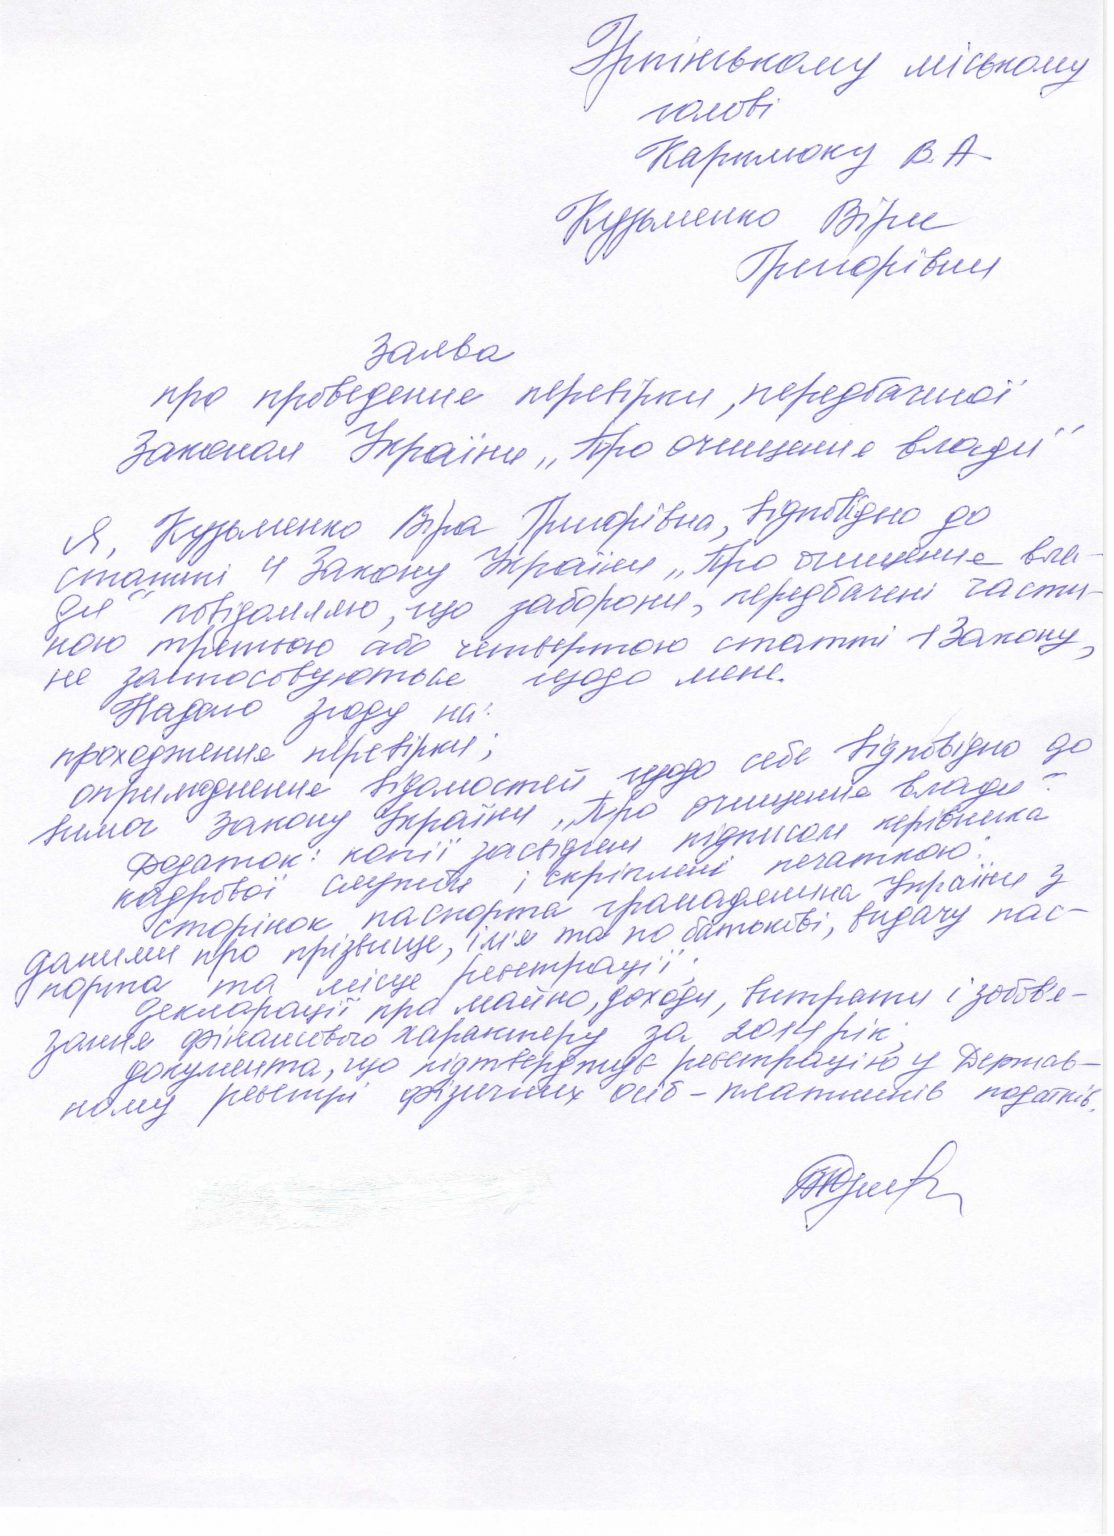 Ірпінському міському
голові
Карплюку В.А
Кузьменко Віри
Григорівни
Заява
про проведення перевірки, передбаченої
Законом України „Про очищення влади"
Я, Кузьменко Віра Григорівна, відповідно до
статті 4 Закону України „Про очищення вла-
ди" повідомляю, що заборони, передбачені части-
ною третьою або четвертою статті 1 Закону,
не застосовуються щодо мене.
Надаю згоду на:
проходження перевірки;
оприлюднення відомостей щодо себе відповідно до
вимог Закону України „Про очищення влади"
Додаток: копії засвідчені підписом керівника
кадрової служби і скріплені печаткою:
сторінок паспорта громадянина України з
даними про прізвище, ім'я та по батькові, видачу пас-
порта та місце реєстрації;
декларації про майно, доходи, витрати і зобов'я-
зання фінансового характеру за 2014 рік;
документа, що підтверджує реєстрацію у Держав-
ному реєстрі фізичних осіб - платників податків.